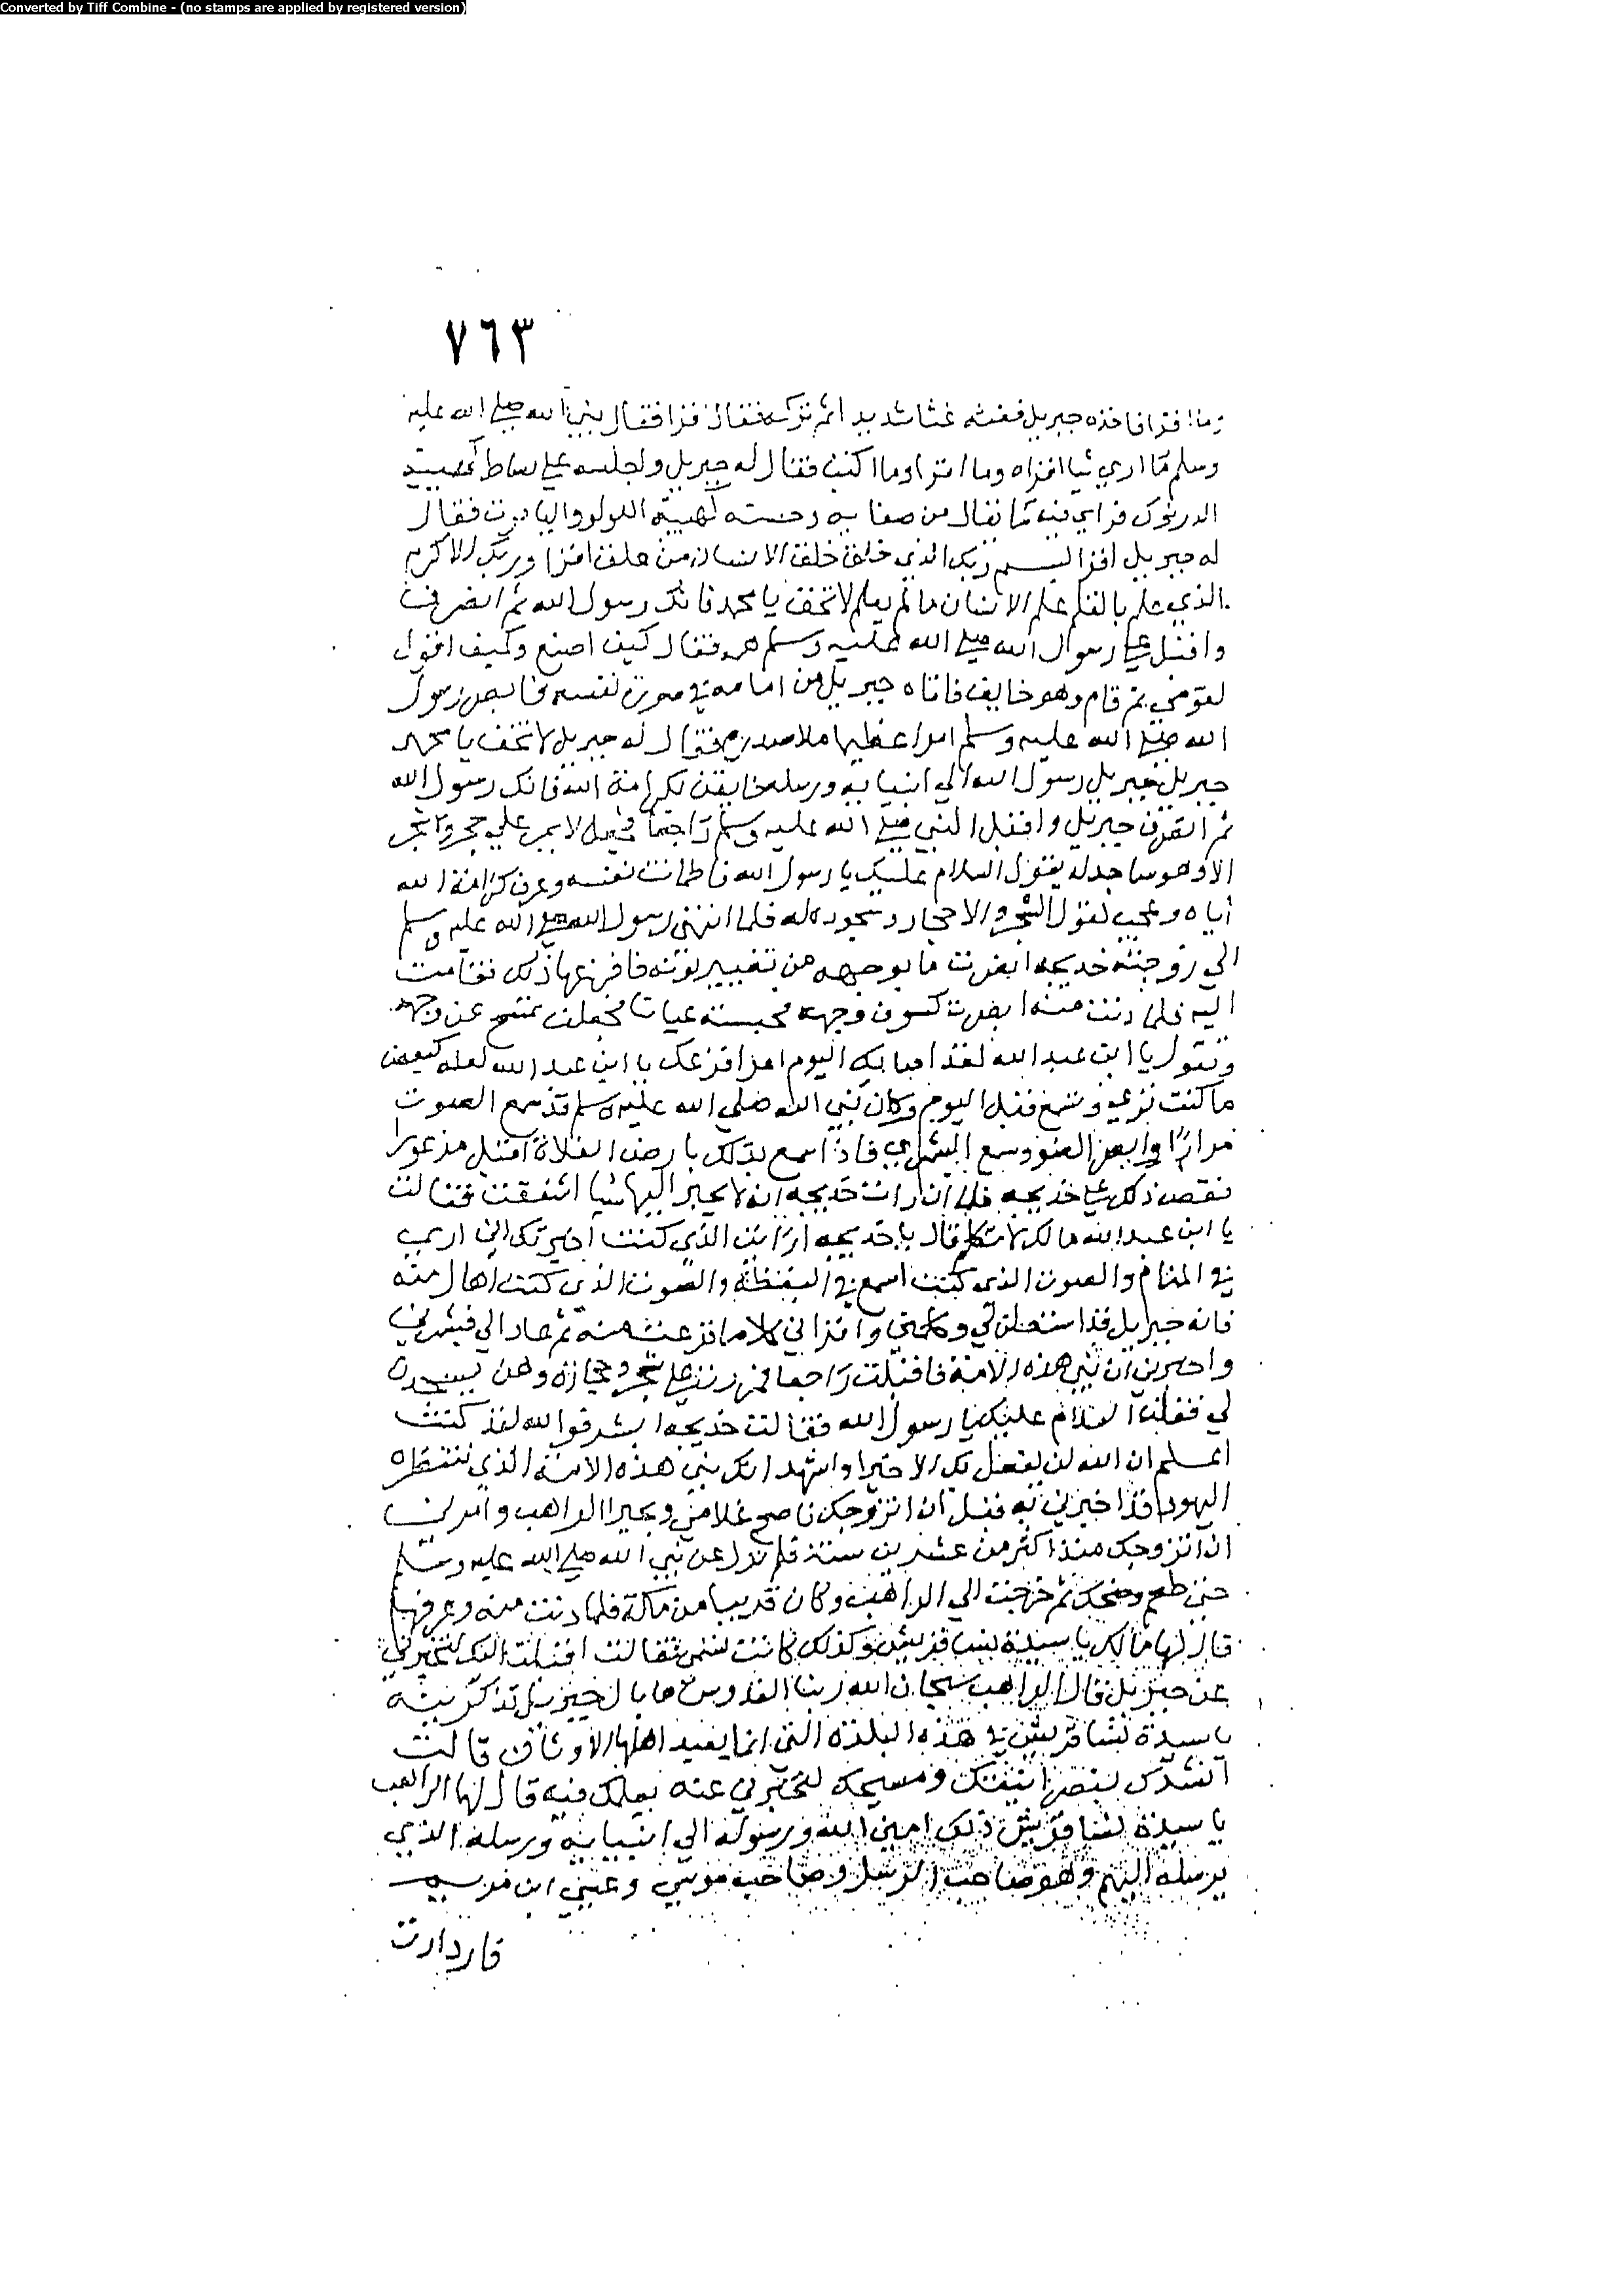 Converted by Tiff Combine - (no stamps are applied by registered version)
٧٦٣
وما اقرا فاخذه جبريل فغته غتا شديدا ثم تركه فقال اقرا فقال نبي الله صلي الله عليه
وسلم ما اري شيا اقراه وما اقرا وما اكتب فقال له جبريل واجلسه علي بساط كهيية
الدرنوك فراي فيه من صفايه وحسنه كهيية اللولو والياقوت فقال
له جبريل اقرا باسم ربك الذي خلق خلق الانسان من علق اقرا وربك الاكرم
الذي علم بالقلم علم الانسان ما لم يعلم لا تخف يا محمد فانك رسول الله ثم انصرف
واقبل علي رسول الله صلي الله عليه وسلم همه فقال كيف اصنع وكيف اقول
لقومي ثم قام وهو خايف فاتاه جبريل من امامه في صورة نفسه فابصر رسول
الله صلي الله عليه وسلم امرا عظيما ملا صدره فقال له جبريل لا تخف يا محمد
جبريل جبريل رسول الله الي انبيايه ورسله فايقن بكرامة الله فانك رسول الله
ثم انصرف جبريل واقبل النبي صلي الله عليه وسلم راجعا فجعل لا يمر علي حجر ولا شجر
الا وهو ساجد له يقول السلام عليك يا رسول الله فاطمانت نفسه وعرف كرامة الله
اياه وعجب لقول الشجر والاحجار وسجودها له فلما انتهي رسول الله صلي الله عليه وسلم
الي زوجته خديجه ابصرت ما بوجهه من تغيير لونه فافزعها ذلك فقامت
اليه فلما دنت منه ابصرت كسوف وجهه فجعلت تمسح عن وجهه
وتقول يا ابن عبد الله لقد اصابك اليوم امر افزعك يا ابن عبد الله لعله كبعض
ما كنت تري وتسمع قبل اليوم وكان نبي الله صلي الله عليه وسلم قد سمع الصوت
مرارا وابصر الضو وسمع البشري فاذا سمع بذلك بارض الفلاة اقبل مذعورا
فقص ذلك علي خديجه فلما ان رات خديجه انه لا يحير اليها شيا اشفقت فقالت
يا ابن عبد الله مالك لا تتكلم قال يا خديجه ارايت الذي كنت اخبرتك اني اري
في المنام والصوت الذي كنت اسمع في اليقظة والصوت الذي كنت اهال منه
فانه جبريل قد استعلن لي وكلمني واقراني كلاما فزعت منه ثم عاد الي فبشرني
واخبرني ان نبي هذه الامة فاقبلت راجعا فمررت علي شجر وحجارة وهن يسجدن
لي فقلن السلام عليك يا رسول الله فقالت خديجه ابشر فوالله لقد كنت
اعلم ان الله لن يفعل بك الا خيرا واشهد انك نبي هذه الامة الذي تنتظره
اليهود قد اخبرني به قبل ان اتزوجك ناصح غلامي وبحيرا الراهب وامرني
ان اتزوجك منذ اكثر من عشرين سنة فلم تزل عن نبي الله صلي الله عليه وسلم
حتي طعم وضحك ثم خرجت الي الراهب وكان قريبا من مكة فلما دنت منه وعرفها
قال لها مالك يا سيدة نسا قريش وكذلك كانت تسمي فقالت اقبلت اليك لتخبرني
عن جبريل قال الراهب سبحان الله ربنا القدوس ما بال جبريل تذكرينه
يا سيدة نسا قريش في هذه البلدة التي انما يعبد اهلها الاوثان قالت
انشدك بنصرانيتك ومسيحك لتخبرني عنه بعلمك فيه قال لها الراهب
يا سيدة نسا قريش ذلك امين الله ورسوله الي انبيايه ورسله الذي
يرسله اليهم وهو صاحب الرسل وصاحب موسي وعيسي ابن مريم
فازدادت